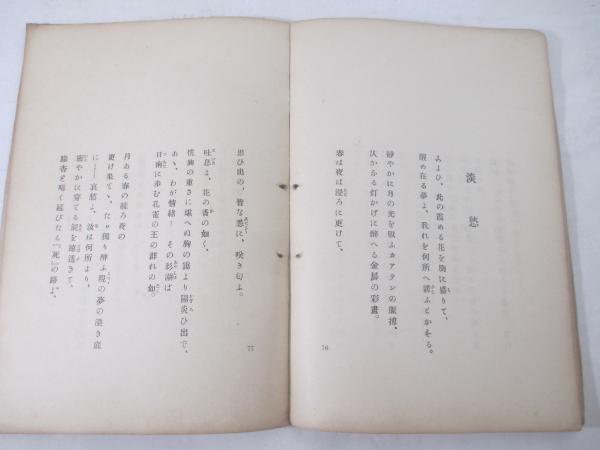 淡愁
こよひ、此の霞める花を胸に盛りて、
醒め在る夢よ、我れを何所へ誘ふとかする。
静やかに月の光を吸ふカアテンの脈搏、
仄かなる灯かげに酔へる金屏の彩畫。
春は夜は浸ろに更けて、
76
思ひ出の、皆な悉に、咲き匂ふ。
吐息よ、花の香の如く、
情趣の重さに堪へぬ胸の
より陽炎ひ出で、
あゝ、わが情緒! その彩裾は
日南に歩む孔雀の王の群れの如。
月ある春の朧ろ夜の
更け果てゝ、たゞ獨り醉ふ現の夢の淡き底
に――哀愁よ、汝は何所より、
に穿てる
を遠透きて、
き延びたる『死』の路ゆ、
77